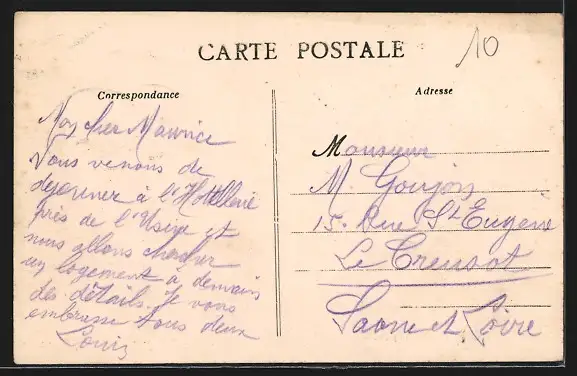 10
CARTE POSTALE
Correspondance
Adresse
Mon cher Maurice
Nous venons de
dejeuner à l'Hotellerie
près de l'Usine et
nous allons chercher
un logement à demain
des détails. Je vous
embrasse tous deux
Louis
Monsieur
M. Goujon
15. Rue St Eugène
Le Creusot
Saone et Loire